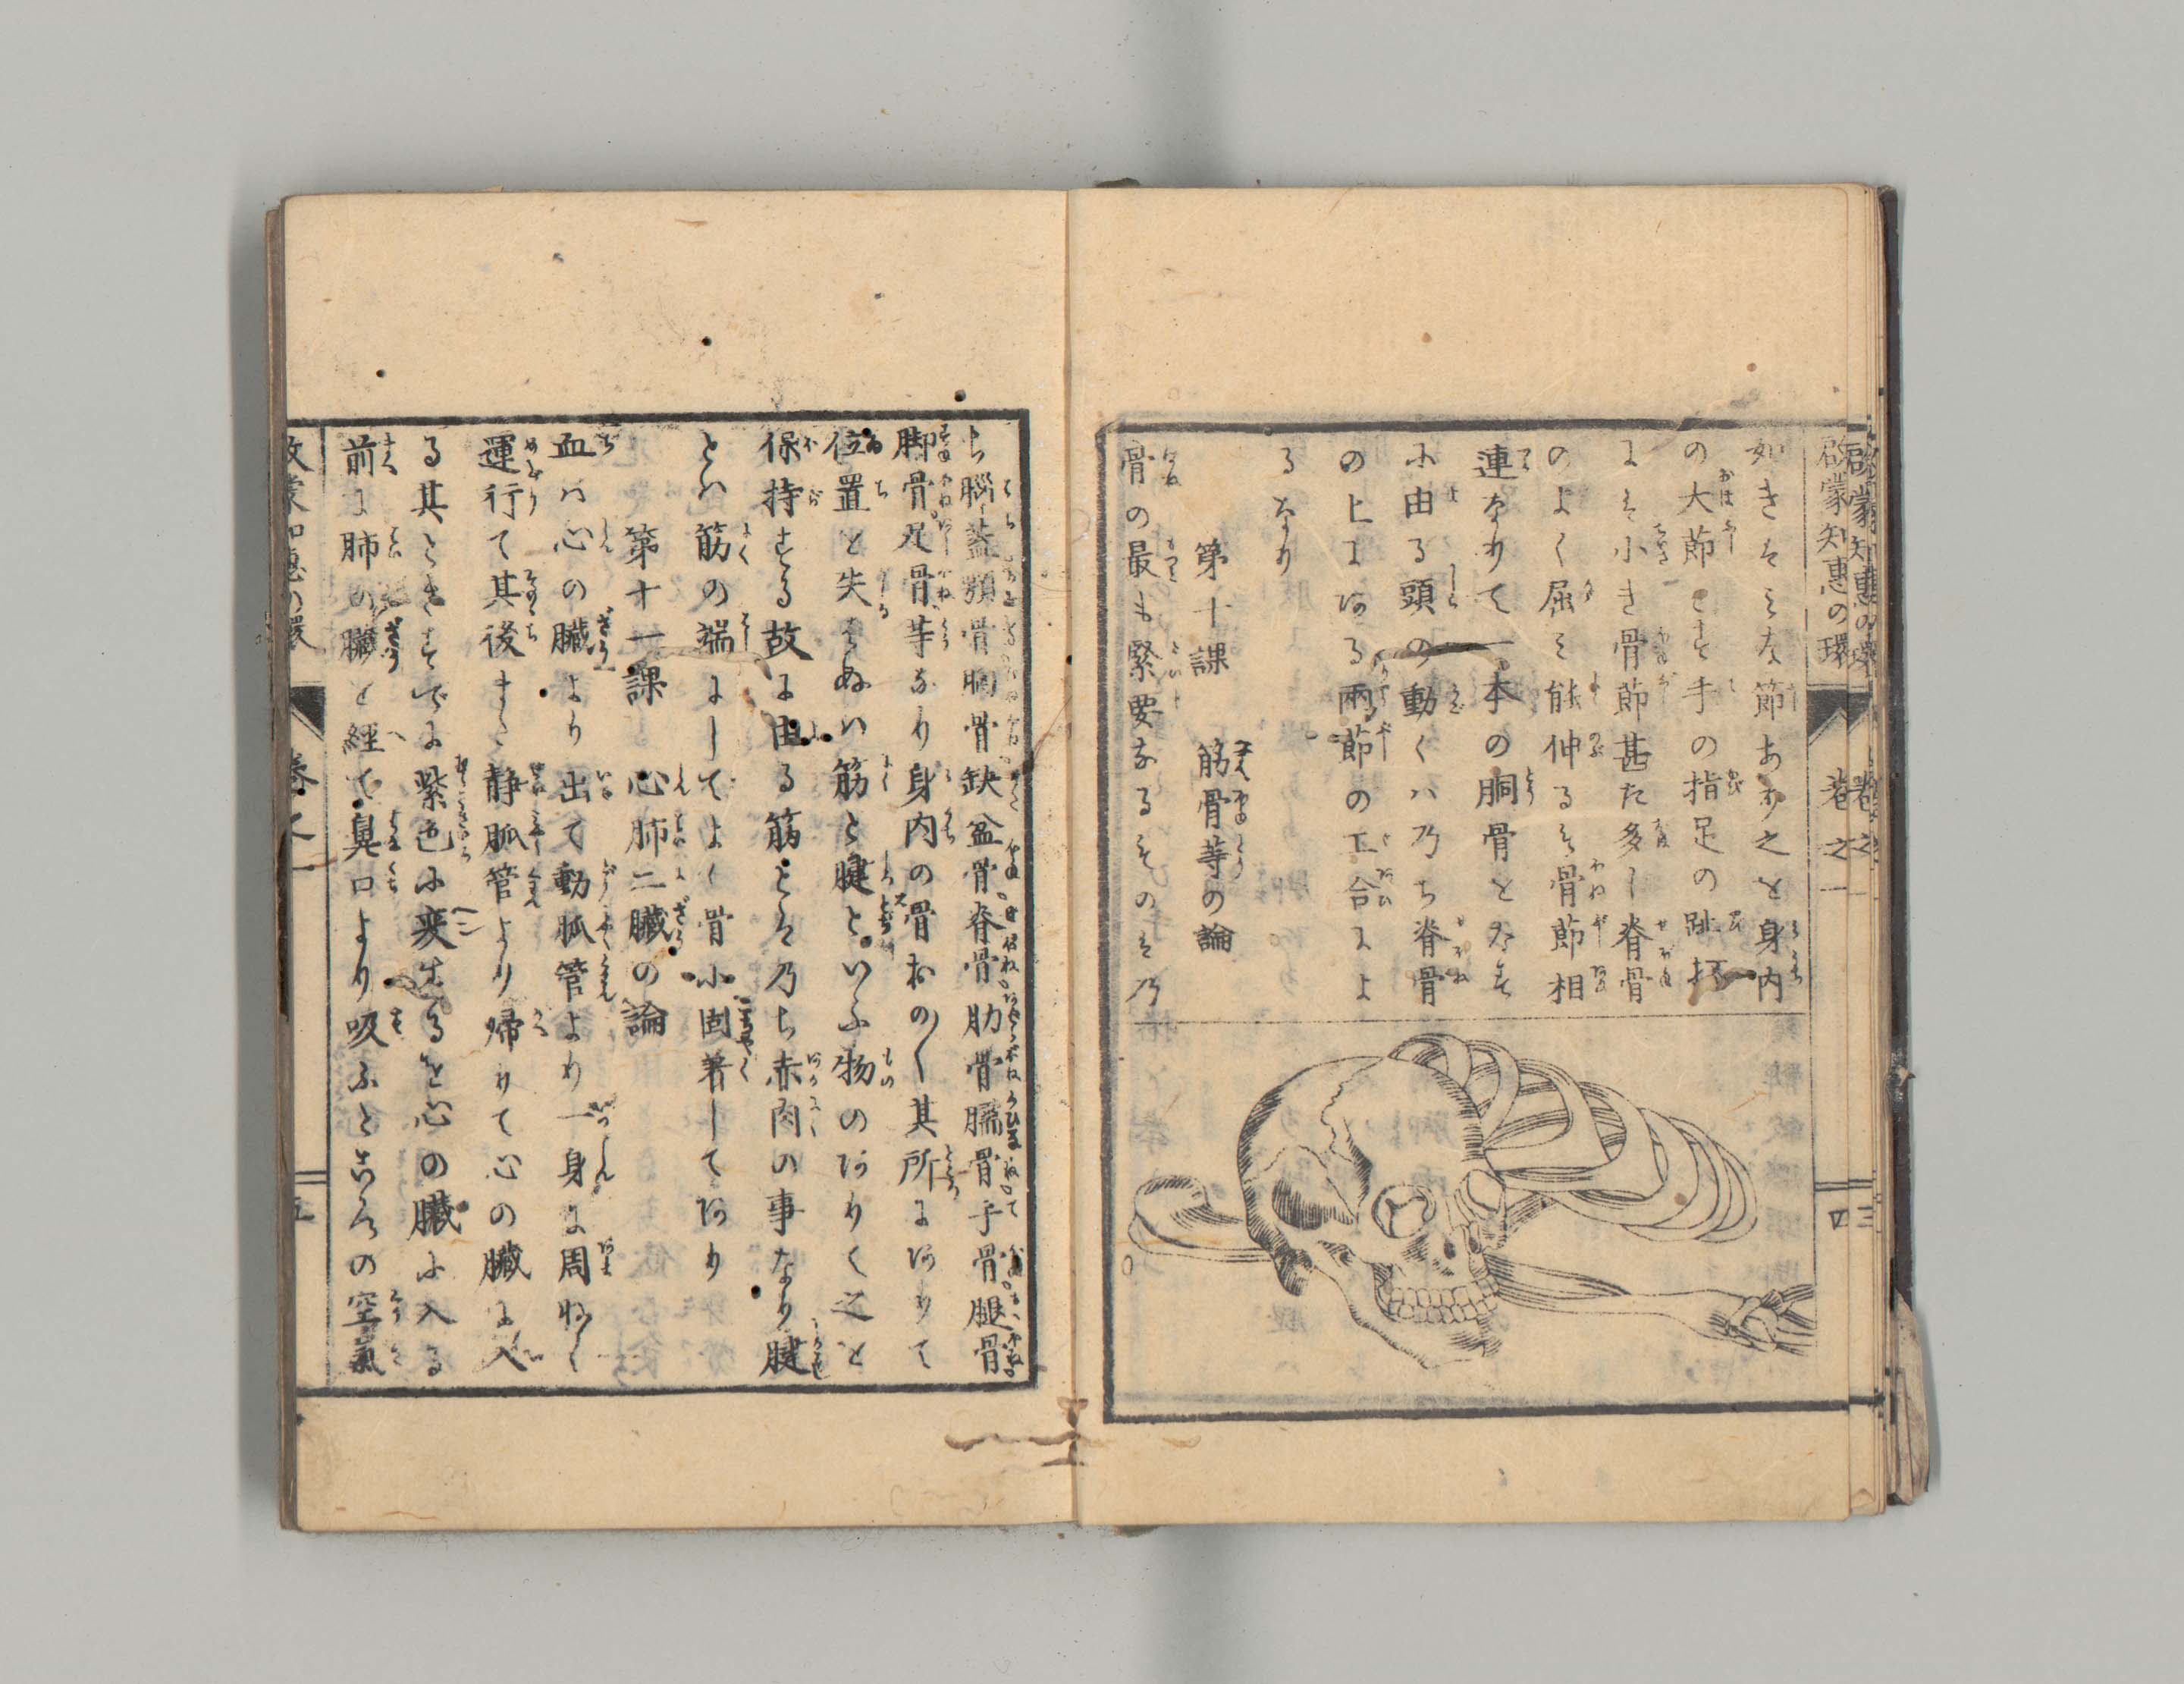 啓蒙知惠の環
卷之一
四
如きそこな節あり之を身内
の大節とす手の指足の趾抔
にも小き骨節甚た多し脊骨
のよく屈み能伸るも骨節相
連なりて一本の胴骨となす
に由る頭の動くハ乃ち脊骨
の上にある兩節の工合によ
るなり
第十課　筋骨等の論
骨の最も緊要なるものは乃
ち腦蓋顎骨胸骨缺盆骨脊骨肋骨臑骨手骨腿骨
脚骨足骨等なり身内の骨おの〱其所にありて
位置を失はぬハ筋と腱といふ物のありく之を
保持する故に由る筋とは乃ち赤肉の事なり腱
とハ筋の端にしてよく骨に固着してあり
第十一課　心肺二臟の論
血ハ心の臟より出て動脈管より一身に周ねく
運行て其後また静脈管より帰りて心の臟に入
る其ときすでに紫色に変するを心の臟に入る
前に肺の臟を經て鼻口より吸ふところの空氣
啓蒙知惠の環
卷之一
五